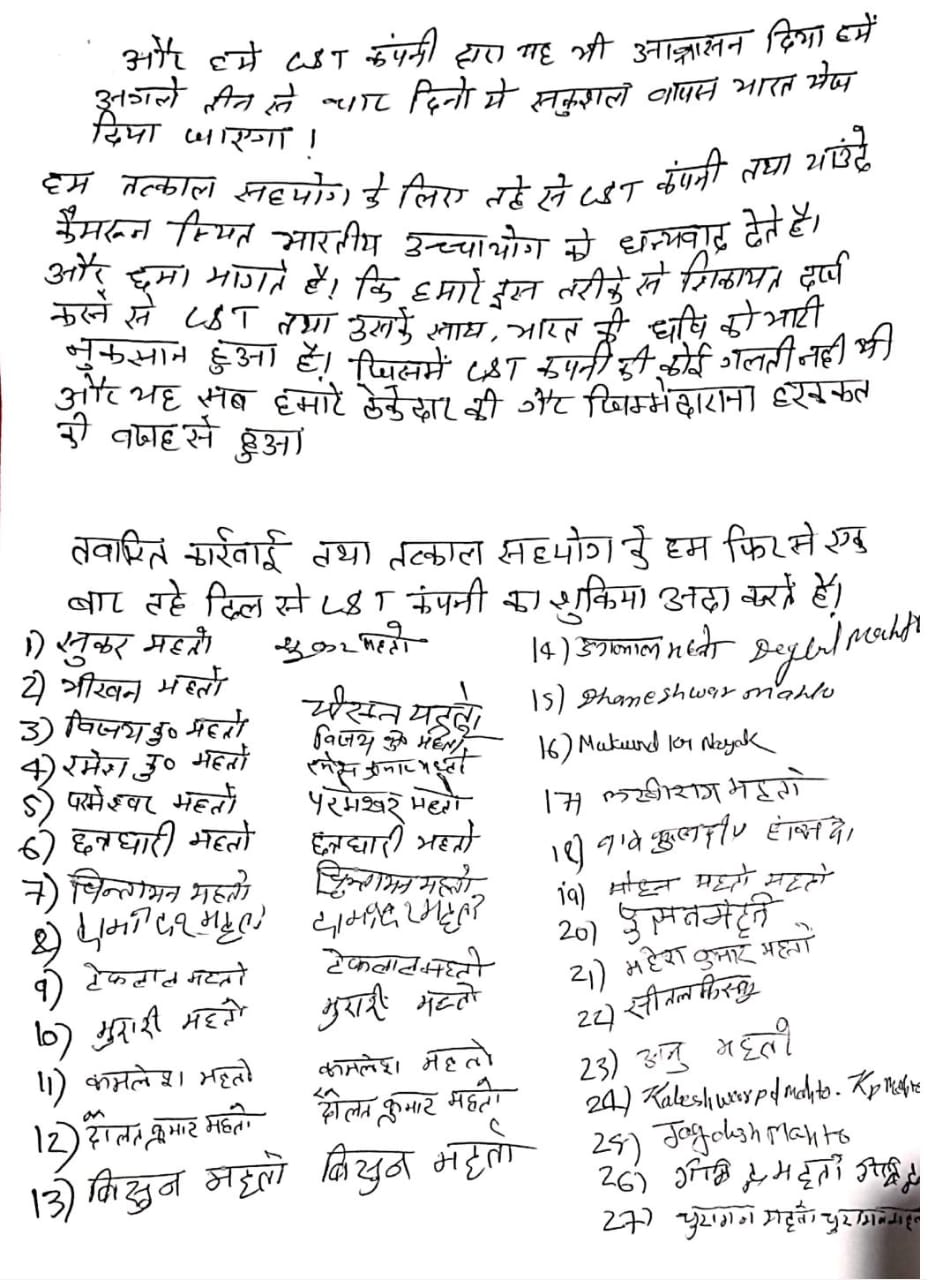 और हमे L&T कंपनी द्वारा यह भी आश्वासन दिया हमें
अगले तीन से चार दिनो मे सकुशल वापस भारत भेज
दिया जाएगा।
हम तत्काल सहयोग के लिए तहे से L&T कंपनी तथा याउंदे
कैमरून स्थित भारतीय उच्चायोग को धन्यवाद देते है।
और छमा मागते है। कि हमारे इस तरीके से शिकायत दर्ज
करने से L&T तथा उसके साथ, भारत की छवि को भारी
नुकसान हुआ है। जिसमें L&T कंपनी की कोई गलती नही थी
और यह सब हमारे ठेकेदार की गैर जिम्मेदाराना हरककत
की वजह से हुआ
तवारित कार्रवाई तथा तत्काल सहयोग के हम फिर से एक
बार तहे दिल से L&T कंपनी का शुक्रिया अदा करते हैं।
1) सुकर महतो शुकर महतो
2) भीखन महतो महतो
3) विजय कु० महतो विजय कु० महतो
4) रमेश कु० महतो रमेश कुमार महतो
5) परमेश्वर महतो परमेश्वर महतो
6) छत्रधारी महतो छत्रधारी महतो
7) चिन्तामन महतो चिन्तामन महतो
8) दामोदर महतो दामोदर महतो
9) टेकलाल महतो टेकलाल महतो
10) मुरारी महतो मुरारी महतो
11) कमलेश महतो कमलेश महतो
12) दौलत कुमार महतो दौलत कुमार महतो
13) बिसुन महतो बिसुन महतो
14) डेगलाल महतो Deglal Mahto
15) Dhameshwar mahto
16) Mukund kr Nayak
17) महतो
18)
19) मोहन महतो महतो
20)
21) महेश कुमार महतो
22) सीतल किस्कू
23) अनु महतो
24) Kaleshwar pd mahto. Kp Mahto
25) Jagdish Mahto
26) महतो
27) महतो